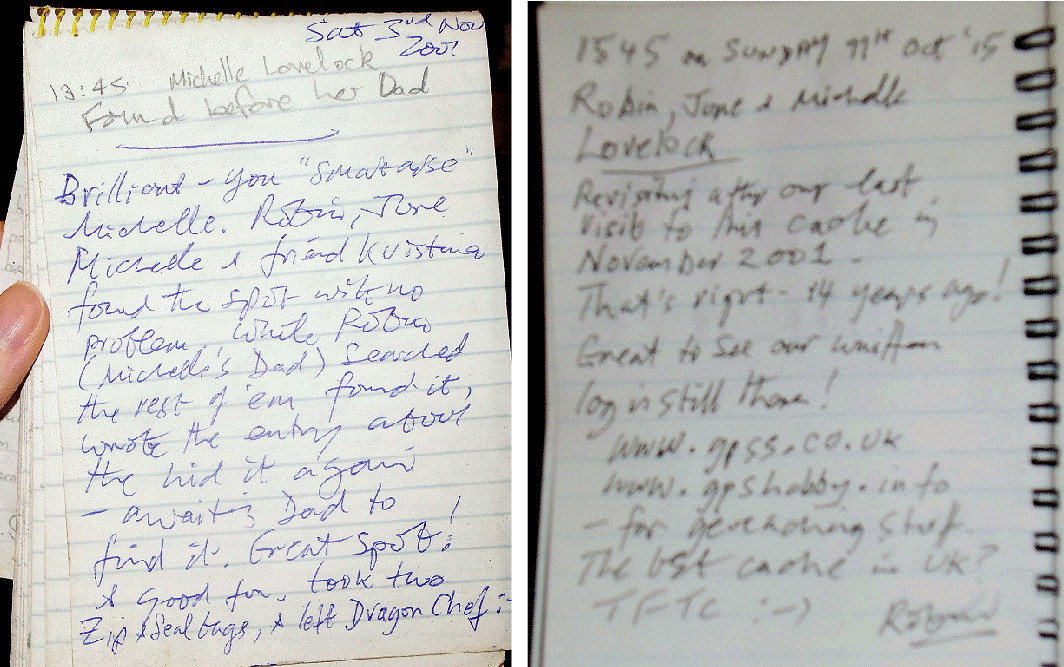 Sat 3rd Nov
2001
13:45 Michelle Lovelock
Found before her Dad
Brilliant - you "smartarse"
Michelle. Robin, June
Michelle & friend Kristina
found the spot with no
problem. While Robin
(Michelle's Dad) searched
the rest of 'em found it,
wrote the entry above
the hid it again
- awaiting Dad to
find it. Great spot!
& good fun. took two
Zip & Seal bags, & left Dragon Chef :-
1545 on SUNDAY 11TH Oct '15
Robin, June & Michelle
Lovelock
Revisiting after our last
visit to this cache in
November 2001.
That's right - 14 years ago!
Great to see our written
log is still there!
www.gpss.co.uk
www.gpshobby.info
- for geocaching stuff.
The 1st cache in UK?
TFTC :-)
Robin